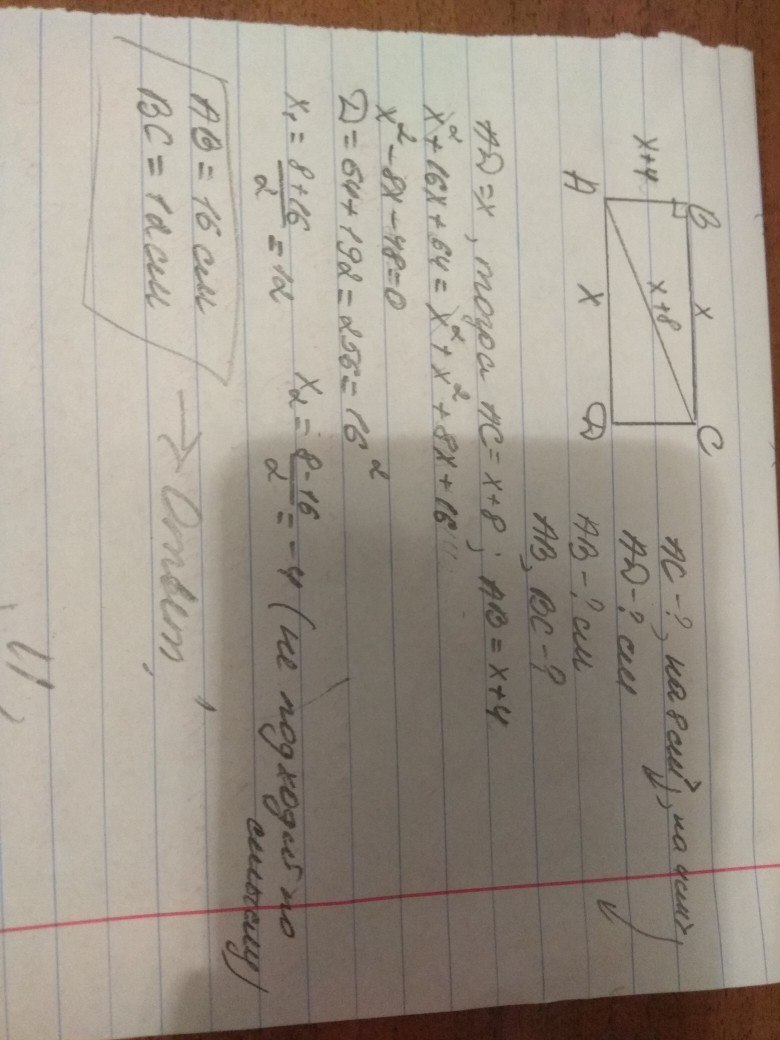 B x C
x+4 x+8
A x D
AC-?, на 8 см >, на 4 см >,
AD-? см
AB-? см
AB, BC-?
AD=x, тогда AC=x+8; AB=x+4
x²+16x+64=x²+x²+8x+16
x²-8x-48=0
D=64+192=256=16²
x₁=8+16/2=12 x₂=8-16/2=-4 (не подходит по
смыслу)
AB=16 см
BC=12 см → Ответ